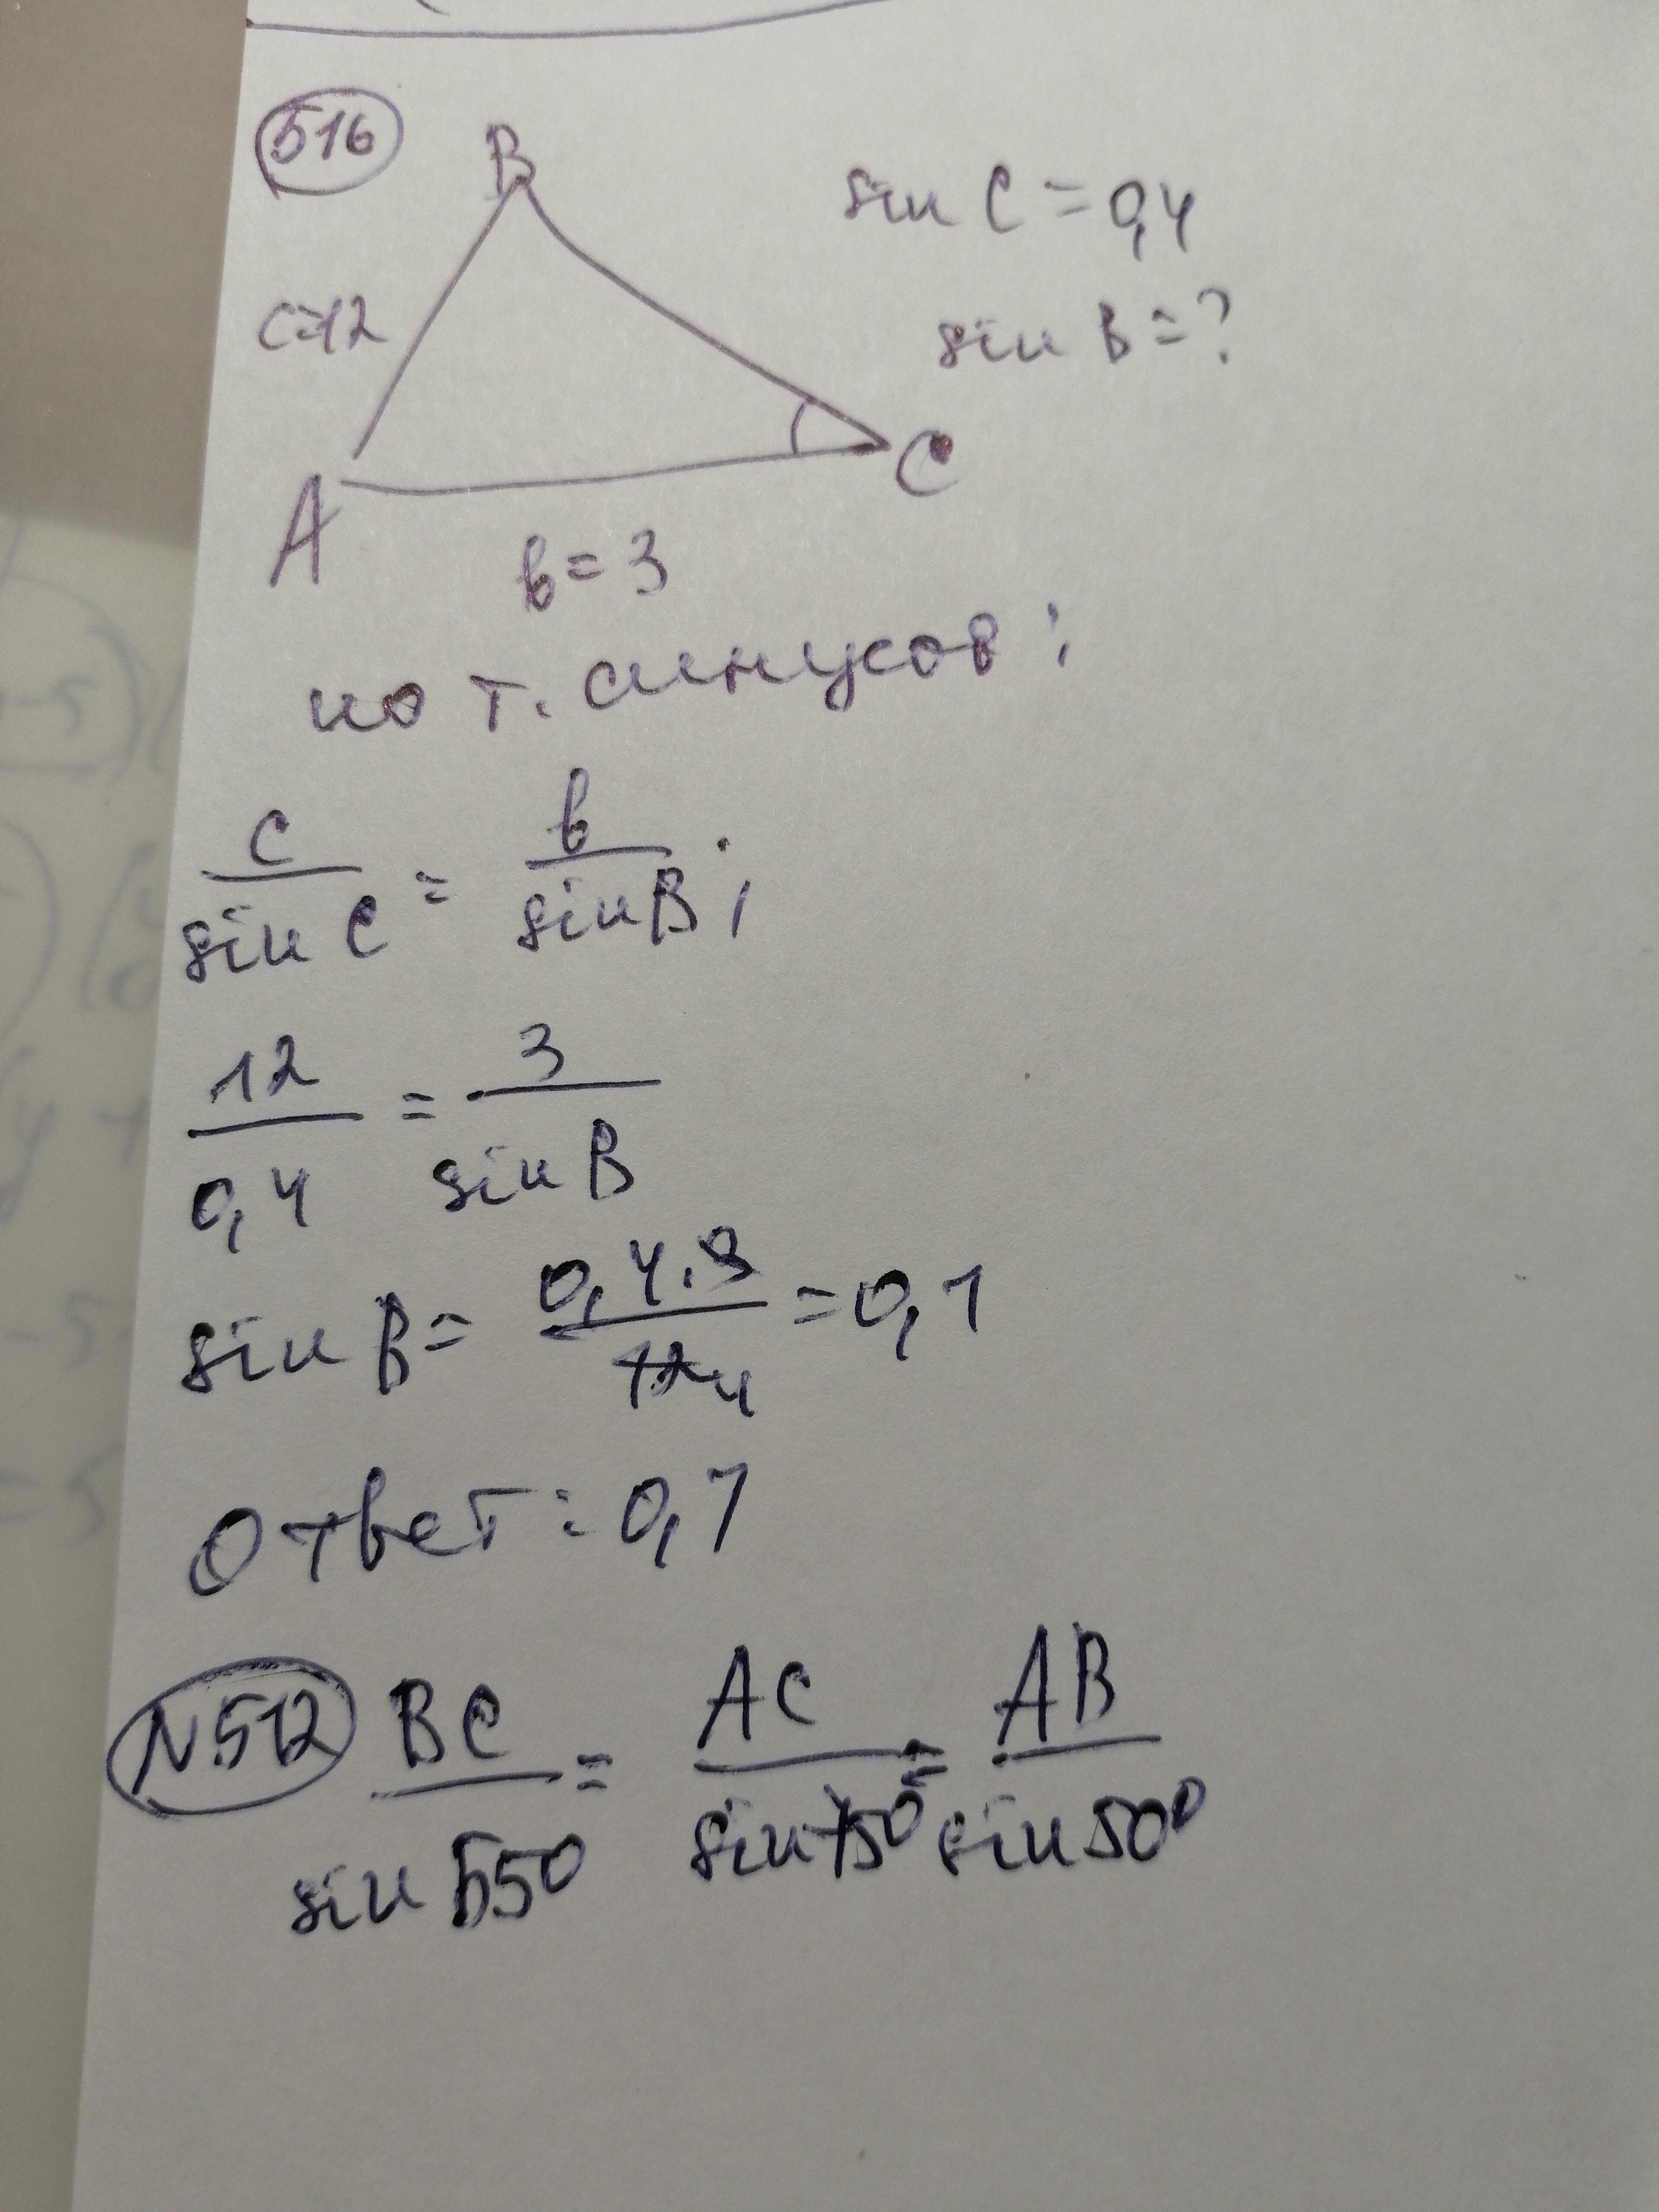 516
B
sin C = 0,4
c=12
sin B = ?
A
C
b = 3
по т. синусов:
c / sin C = b / sin B ;
12 / 0,4 = 3 / sin B
sin B = 0,4 · 3 / 12 4 = 0,1
Ответ: 0,1
N512 BC / sin 55° = AC / sin 75° = AB / sin 50°